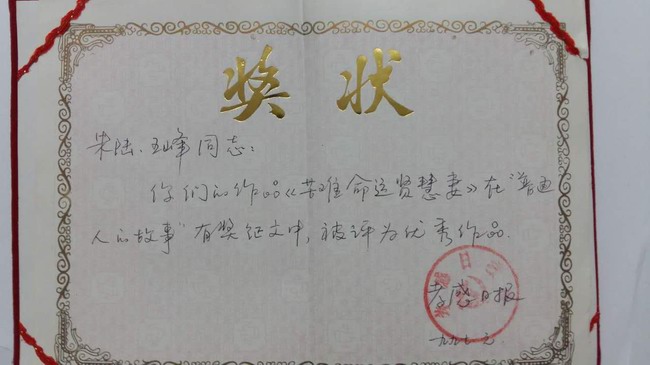 奖状
朱陆、玉峰同志：
你们的作品《苦难命运贤慧妻》在“普通
人的故事”有奖征文中，被评为优秀作品.
孝感日报
一九九七.元.